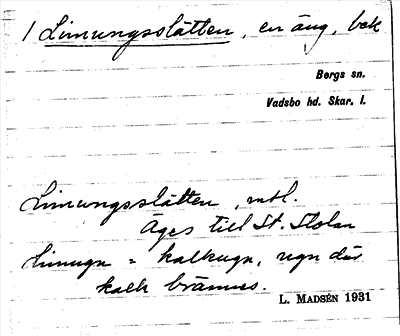 1 Limungsslätten, en äng, bek
Bergs sn.
Vadsbo hd. Skar. l.
Limungsslätten, mtl.
Äges till St. Stolan
limugn = kalkugn, ugn där
kalk brännes.
L. MADSÉN 1931